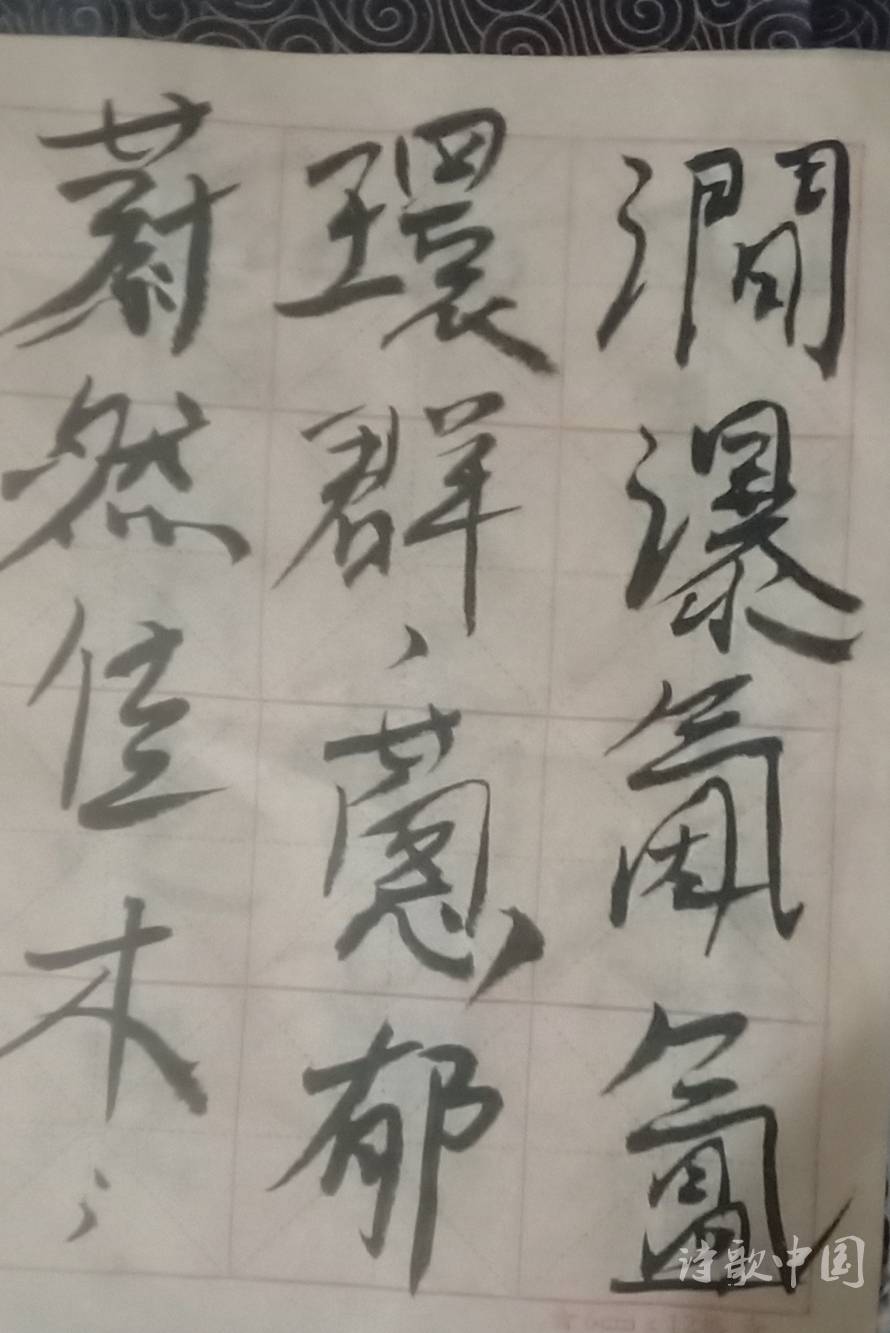 澗瀑氤氳
環群、蔥郁
蔚然佳木〻
诗歌中国